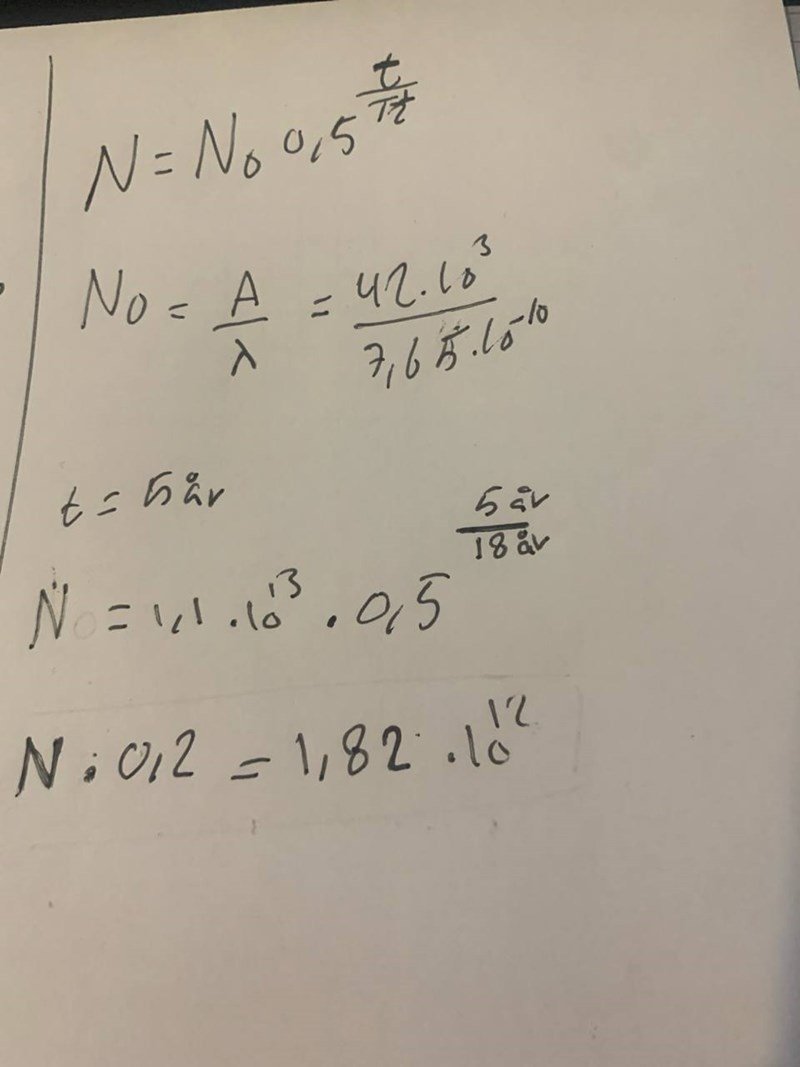 N = N₀ 0,5^(t/Tt)
N₀ = A/λ = 42.10³/7,65.10⁻¹⁰
t = 5 år
N = 1,1 .10¹³ . 0,5^(5 år/18 år)
N . 0,2 = 1,82 .10¹²